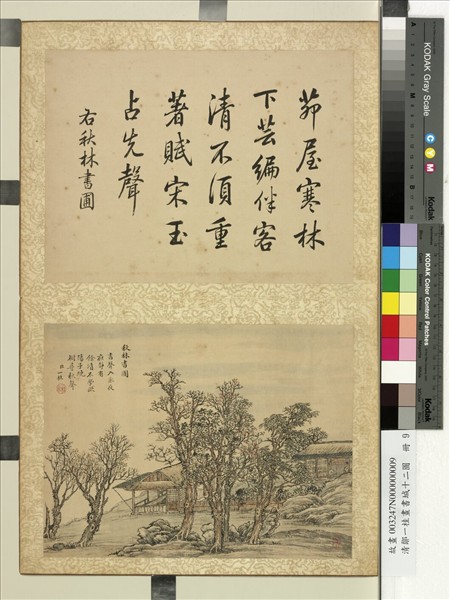 茆屋寒林
下芸編伴客
清不須重
著賦宋玉
占先聲
右秋林書圃
秋林書圃
臣一桂
KODAK Gray Scale
C Y M
Kodak
A
M
B
KODAK Color Control Patches
Kodak
故畫003247N000000009
清鄒一桂畫書城十二圖 冊 9